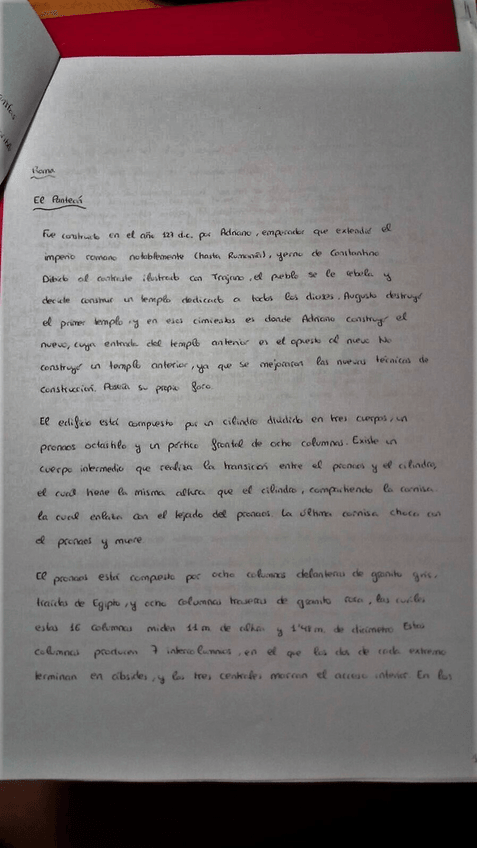 Roma
El Panteón
Fue construido en el año 127 d.c. por Adriano, emperador que extendió el
imperio romano notablemente (hasta Rumanía), yerno de Constantino
Debido al contraste ilustrado con Trajano, el pueblo se le rebela y
decide construir un templo dedicado a todos los dioses. Augusto destruyó
el primer templo y en esos cimientos es donde Adriano construyó el
nuevo, cuya entrada del templo anterior es el opuesto al nuevo No
construyó un templo anterior, ya que se mejoraron las nuevas técnicas de
construcción. Poseía su propio foro.
El edificio está compuesto por un cilindro dividido en tres cuerpos, un
pronaos octástilo y un pórtico frontal de ocho columnas. Existe un
cuerpo intermedio que realiza la transición entre el pronaos y el cilindro,
el cual tiene la misma altura que el cilindro, compartiendo la cornisa
la cual enlaza con el tejado del pronaos. La última cornisa choca con
el pronaos y muere.
El pronaos está compuesto por ocho columnas delanteras de granito gris,
traídas de Egipto, y ocho columnas traseras de granito rosa, las cuáles
estas 16 columnas miden 11 m. de altura y 1'48 m. de diámetro Estas
columnas producen 7 intercolumnios, en el que los dos de cada extremo
terminan en ábsides, y los tres centrales marcan el acceso interior. En los